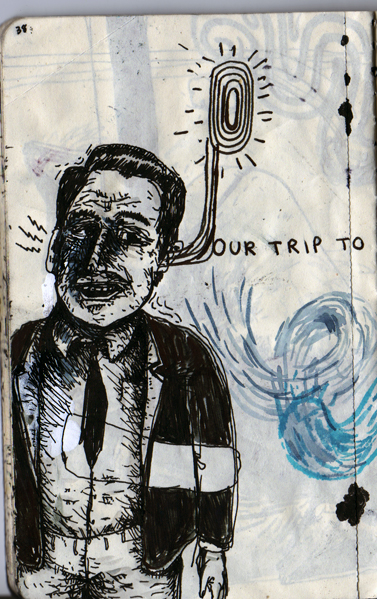 38
OUR TRIP TO